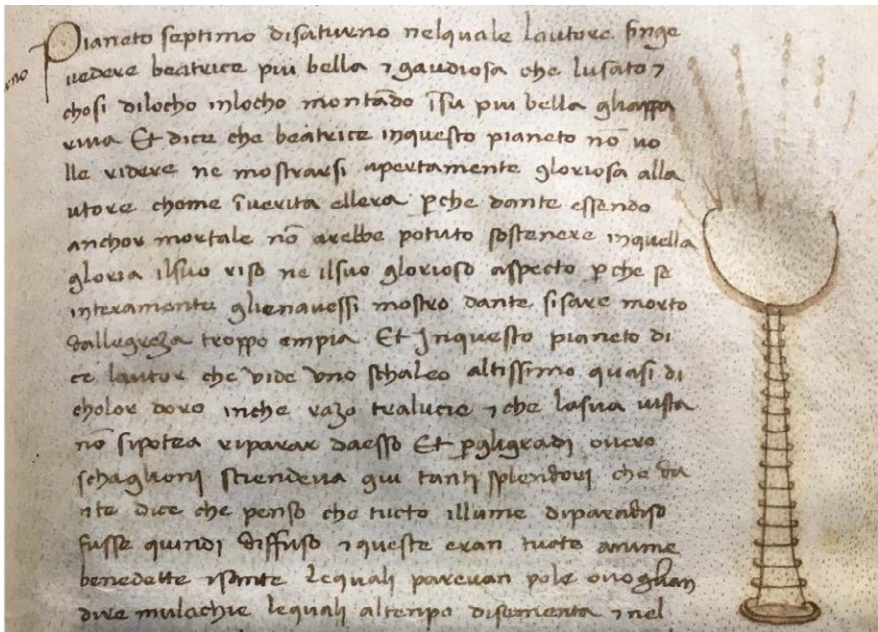 Pianeto septimo disaturno nelquale lautore finge
uedere beatrice piu bella ⁊ gaudiosa che lusato ⁊
chosi dilocho inlocho montãdo ĩsu piu bella gliappa
riua Et dice che beatrice inquesto pianeto nõ uo
lle ridere ne mostrarsi apertamente gloriosa alla
utore chome ĩuerita ellera ꝑche dante essendo
anchor mortale nõ arebbe potuto sostenere inquella
gloria ilsuo riso ne ilsuo glorioso aspecto ꝑche se
interamente glienauessi mostro dante sisare morto
dallegreza troppo empia Et Inquesto pianeto di
ce lautor che vide vno schaleo altissimo quasi di
cholor doro inche razo tralucie ⁊ che lasua uista
nõ sipotea riparar daesso Et ꝑgligradi ouero
schaglioni sciendeua giu tanti splendori che da
nte dice che penso che tucto illume diparadiso
fusse quindi diffuso ⁊ queste eran tucte anime
benedette ⁊sante lequali pareuan pole ouo
dire mulachie lequali altempo disementa ⁊ nel